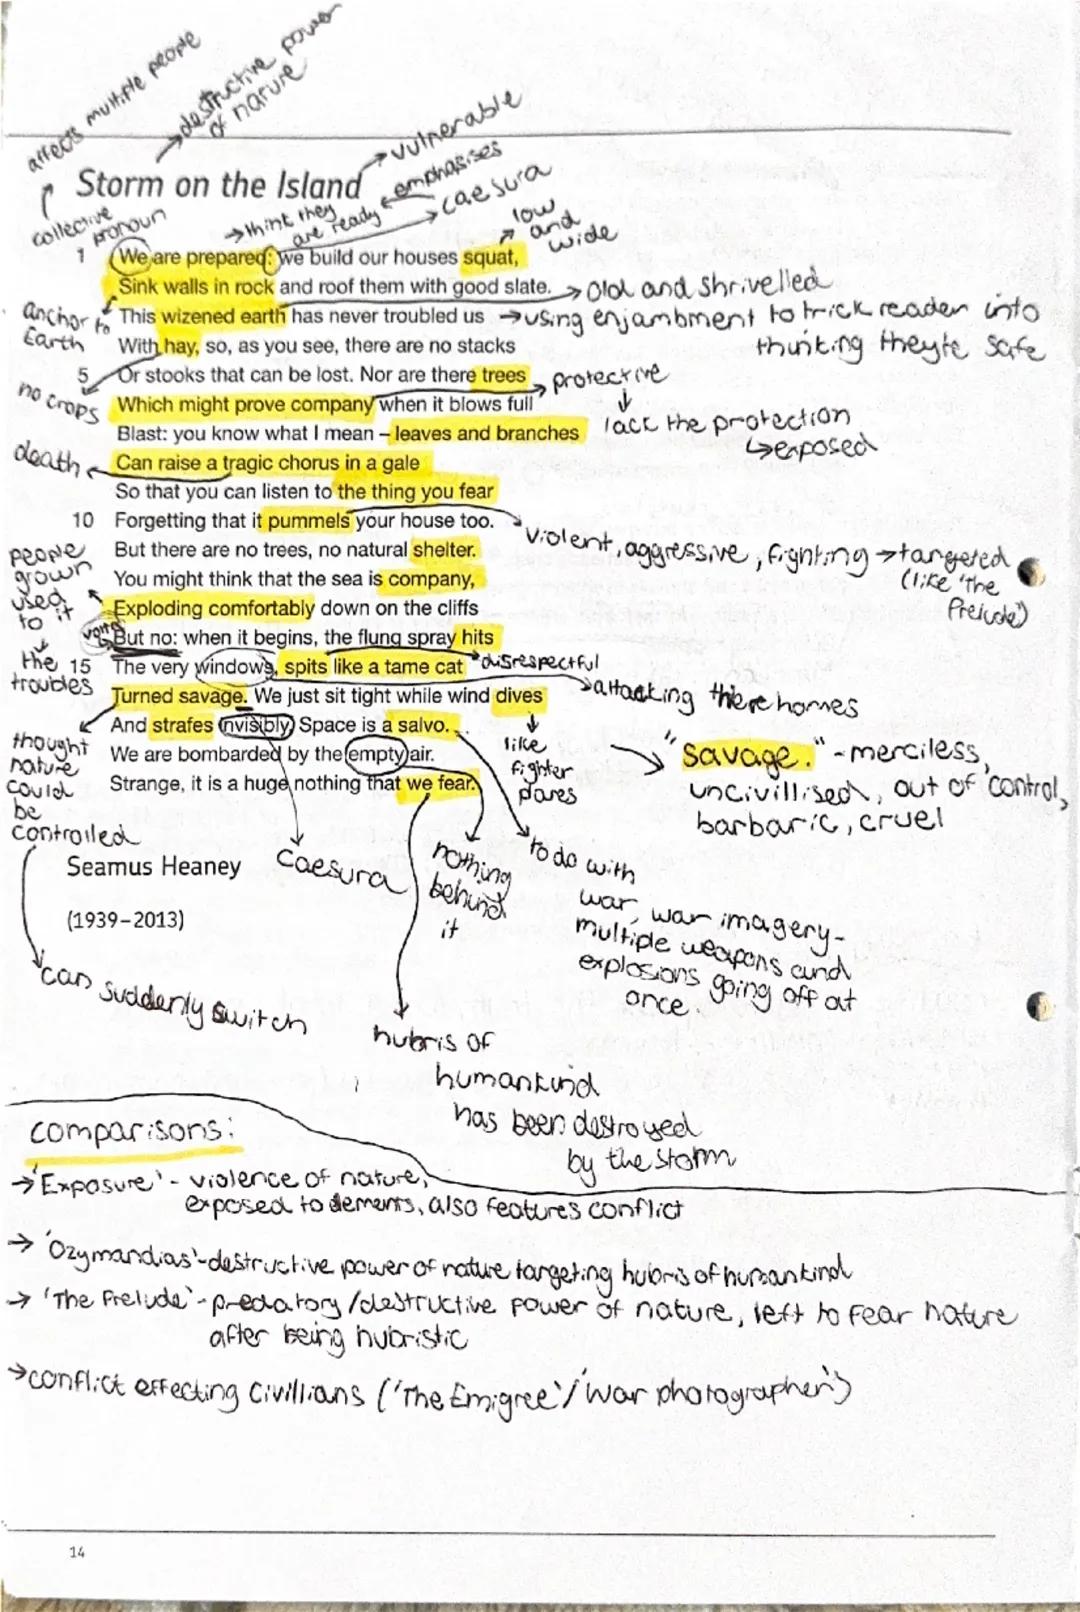 affects multiple people
→destructive power
of nature
→vulnerable
Storm on the Island
emphasises
collective
pronoun
→think they
are ready
→caesura
low
and
wide
1 We are prepared: we build our houses squat,
Sink walls in rock and roof them with good slate.
→old and shrivelled
anchor to
Earth
This wizened earth has never troubled us
→using enjambment to trick reader into
thinking they're safe
With hay, so, as you see, there are no stacks
5 Or stooks that can be lost. Nor are there trees
→protective
no crops
Which might prove company when it blows full
lack the protection
↳exposed
Blast: you know what I mean – leaves and branches
death
Can raise a tragic chorus in a gale
So that you can listen to the thing you fear
10 Forgetting that it pummels your house too.
violent, aggressive, fighting →targeted
(like 'The
Prelude')
people
grown
used
to it
But there are no trees, no natural shelter.
You might think that the sea is company,
Exploding comfortably down on the cliffs
volta
But no: when it begins, the flung spray hits
the
troubles
15 The very windows, spits like a tame cat
disrespectful
→attacking there homes
Turned savage. We just sit tight while wind dives
And strafes invisibly. Space is a salvo.
We are bombarded by the empty air.
Strange, it is a huge nothing that we fear.
thought
nature
could
be
controlled
like
fighter
planes
→ "savage." - merciless,
uncivillised, out of control,
barbaric, cruel
Seamus Heaney
caesura
nothing
behind
it
to do with
war, war imagery-
multiple weapons and
explosions going off at
once.
(1939–2013)
can suddenly switch
hubris of
humankind
has been destroyed
by the storm
comparisons:
→'Exposure' - violence of nature,
exposed to elements, also features conflict
→ 'Ozymandias'-destructive power of nature targeting hubris of humankind
→ 'The Prelude' - predatory/destructive power of nature, left to fear nature
after being hubristic
→conflict effecting civillians ('The Emigree'/'war photographer')
14